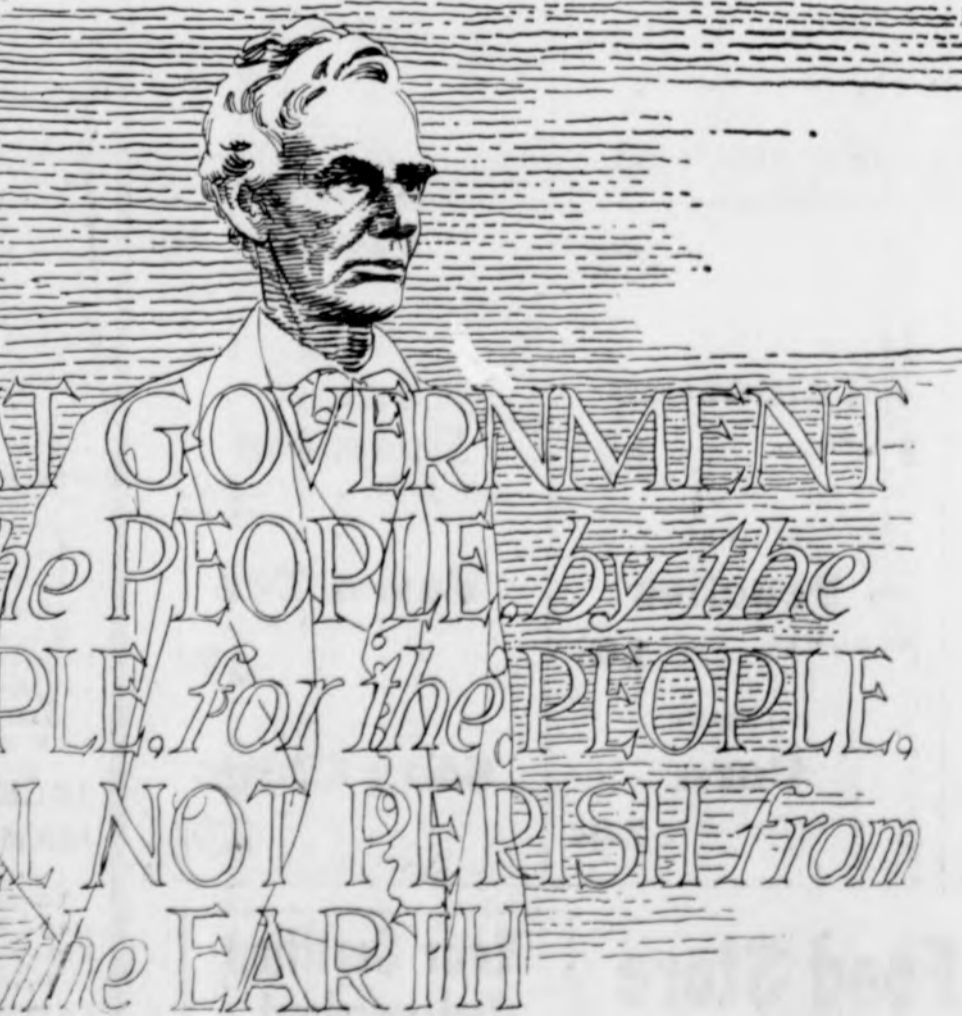 AT GOVERNMENT
he PEOPLE, by the
PLE, for the PEOPLE,
L NOT PERISH from
the EARTH